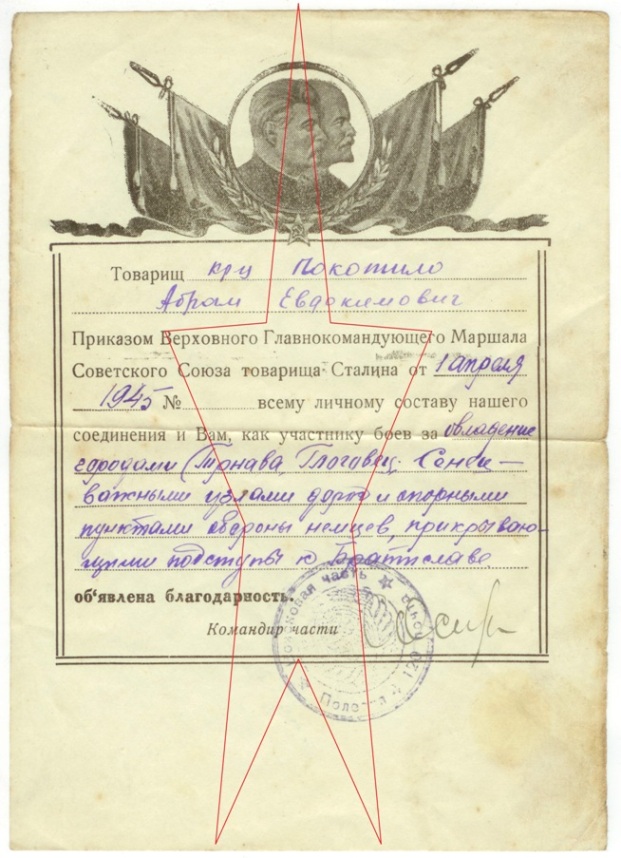 Товарищ кр-ц Покотило
Абрам Евдокимович
Приказом Верховного Главнокомандующего Маршала
Советского Союза товарища Сталина от 1 апреля
1945 № всему личному составу нашего
соединения и Вам, как участнику боев за овладение
городами Трнава, Глоговец, Сенец –
важными узлами дорог и опорными
пунктами обороны немцев, прикрываю-
щими подступы к Братиславе
об'явлена благодарность.
Командир части
Полевая